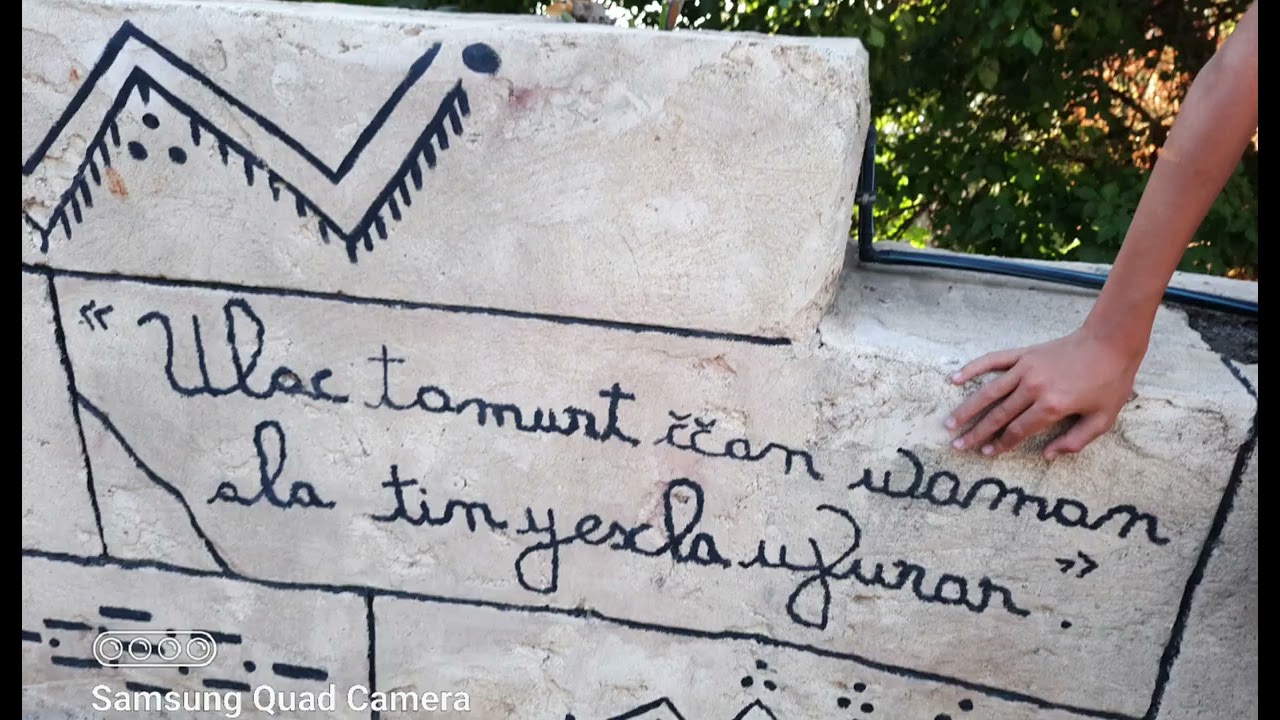 « Ulac tamurt iččan waman
ala tin yexla uẓurar. »
Samsung Quad Camera